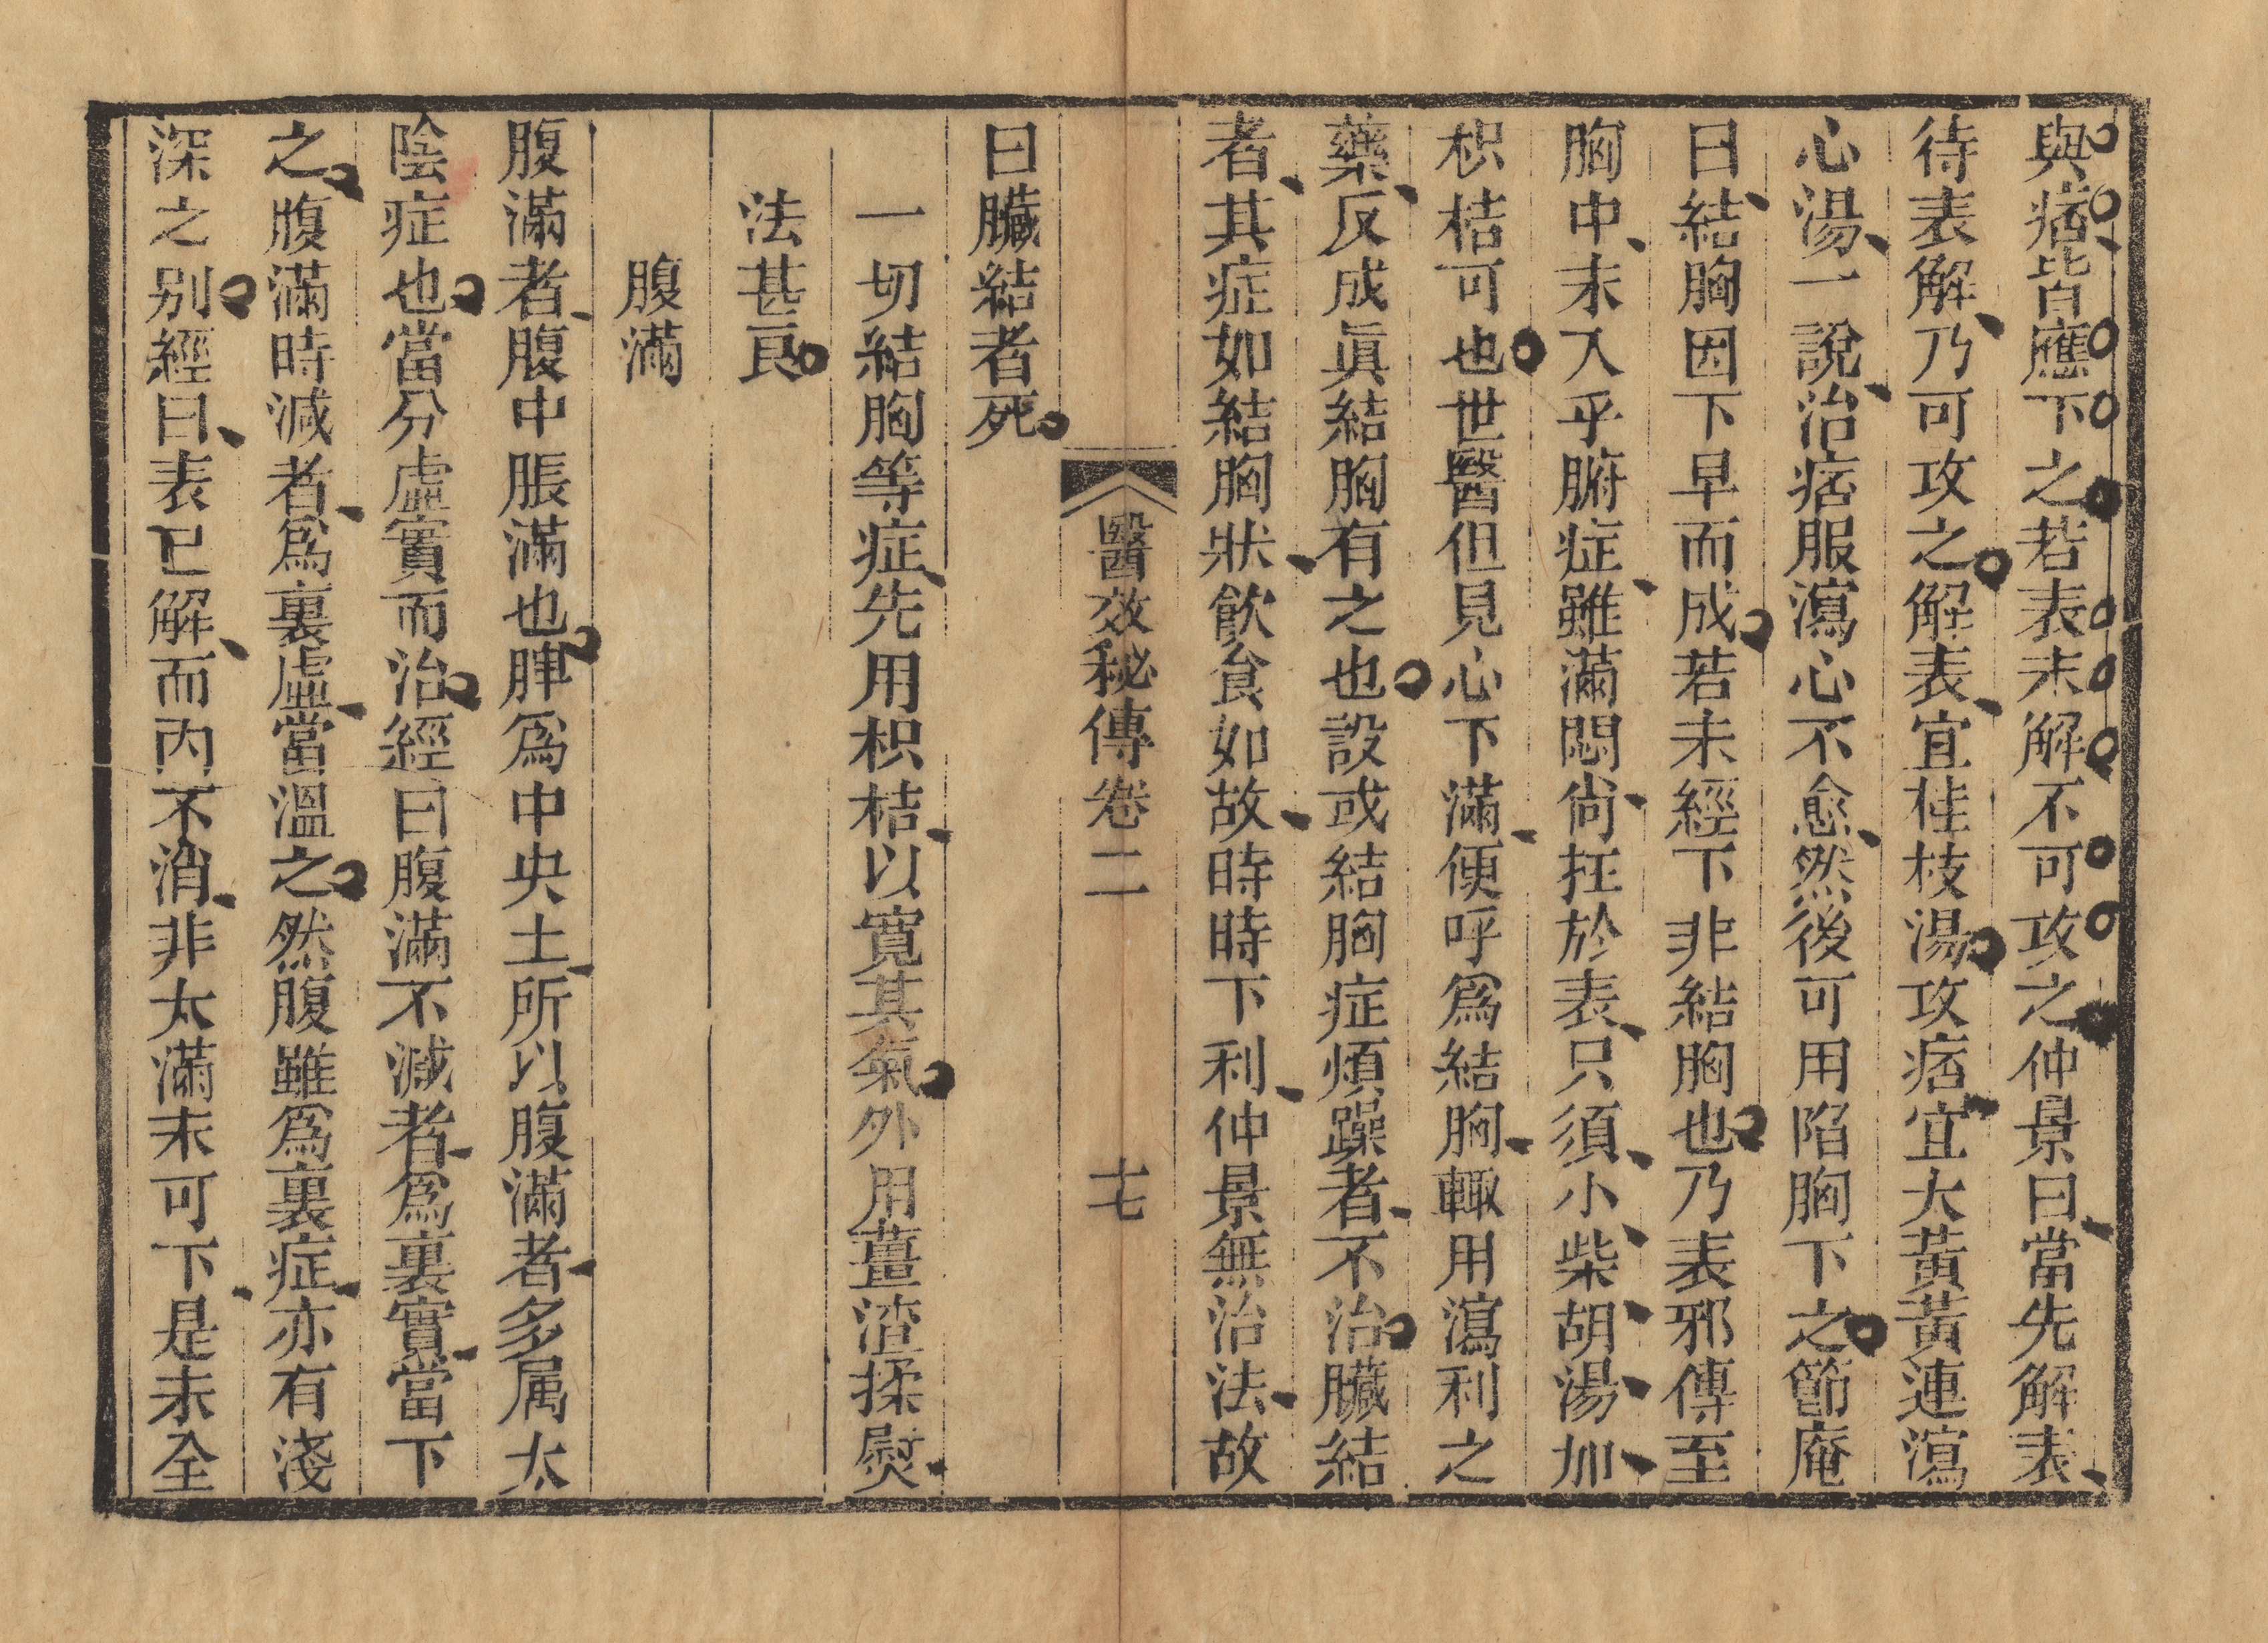 與痞皆應下之若表未解不可攻之仲景曰當先解表
待表解乃可攻之解表宜桂枝湯攻痞宜大黃黃連瀉
心湯一說治痞服瀉心不愈然後可用陷胸下之節庵
曰結胸因下早而成若未經下非結胸也乃表邪傳至
胸中未入乎腑症雖滿悶尙在於表只須小柴胡湯加
枳桔可也世醫但見心下滿便呼爲結胸輙用瀉利之
藥反成眞結胸有之也設或結胸症煩躁者不治臟結
者其症如結胸狀飮食如故時時下利仲景無治法故
醫效秘傳卷二 十七
曰臟結者死
一切結胸等症先用枳桔以寬其氣外用薑渣揉熨
法甚良
腹滿
腹滿者腹中脹滿也脾爲中央土所以腹滿者多属太
陰症也當分虛實而治經曰腹滿不减者爲裏實當下
之腹滿時减者爲裏虛當溫之然腹雖爲裏症亦有淺
深之别經曰表已解而内不消非大滿未可下是未全